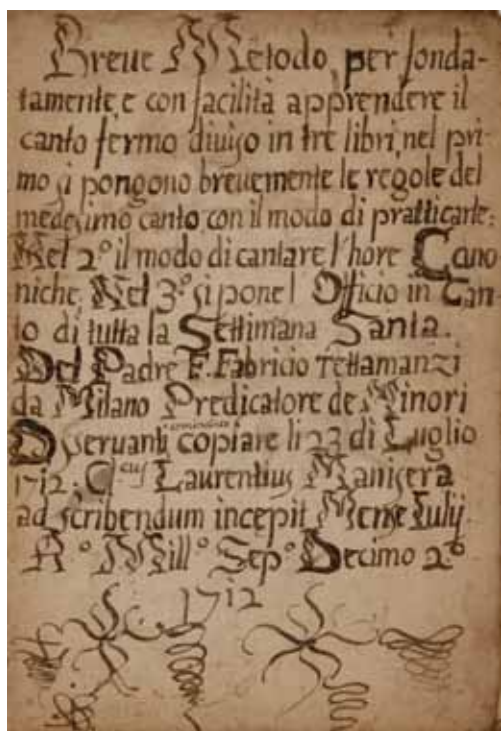 Breue Metodo, per fonda-
tamente, e con facilità apprendere il
canto fermo diuiso in tre libri, nel pri-
mo si pongono breuemente le regole del
medesimo canto con il modo di pratticarle:
Nel 2º il modo di cantare l'hore Cano
niche. Nel 3º si pone l'Officio in Can-
to di tutta la Settimana Santa.
Del Padre F. Fabricio Tettamanzi
da Milano Predicatore de Minori
Osseruanti copiare li 23 di Luglio
1712; Laurentius Manisera
ad scribendum incepit Mense Iulij
Aº Millº Sepº Decimo 2º
1712